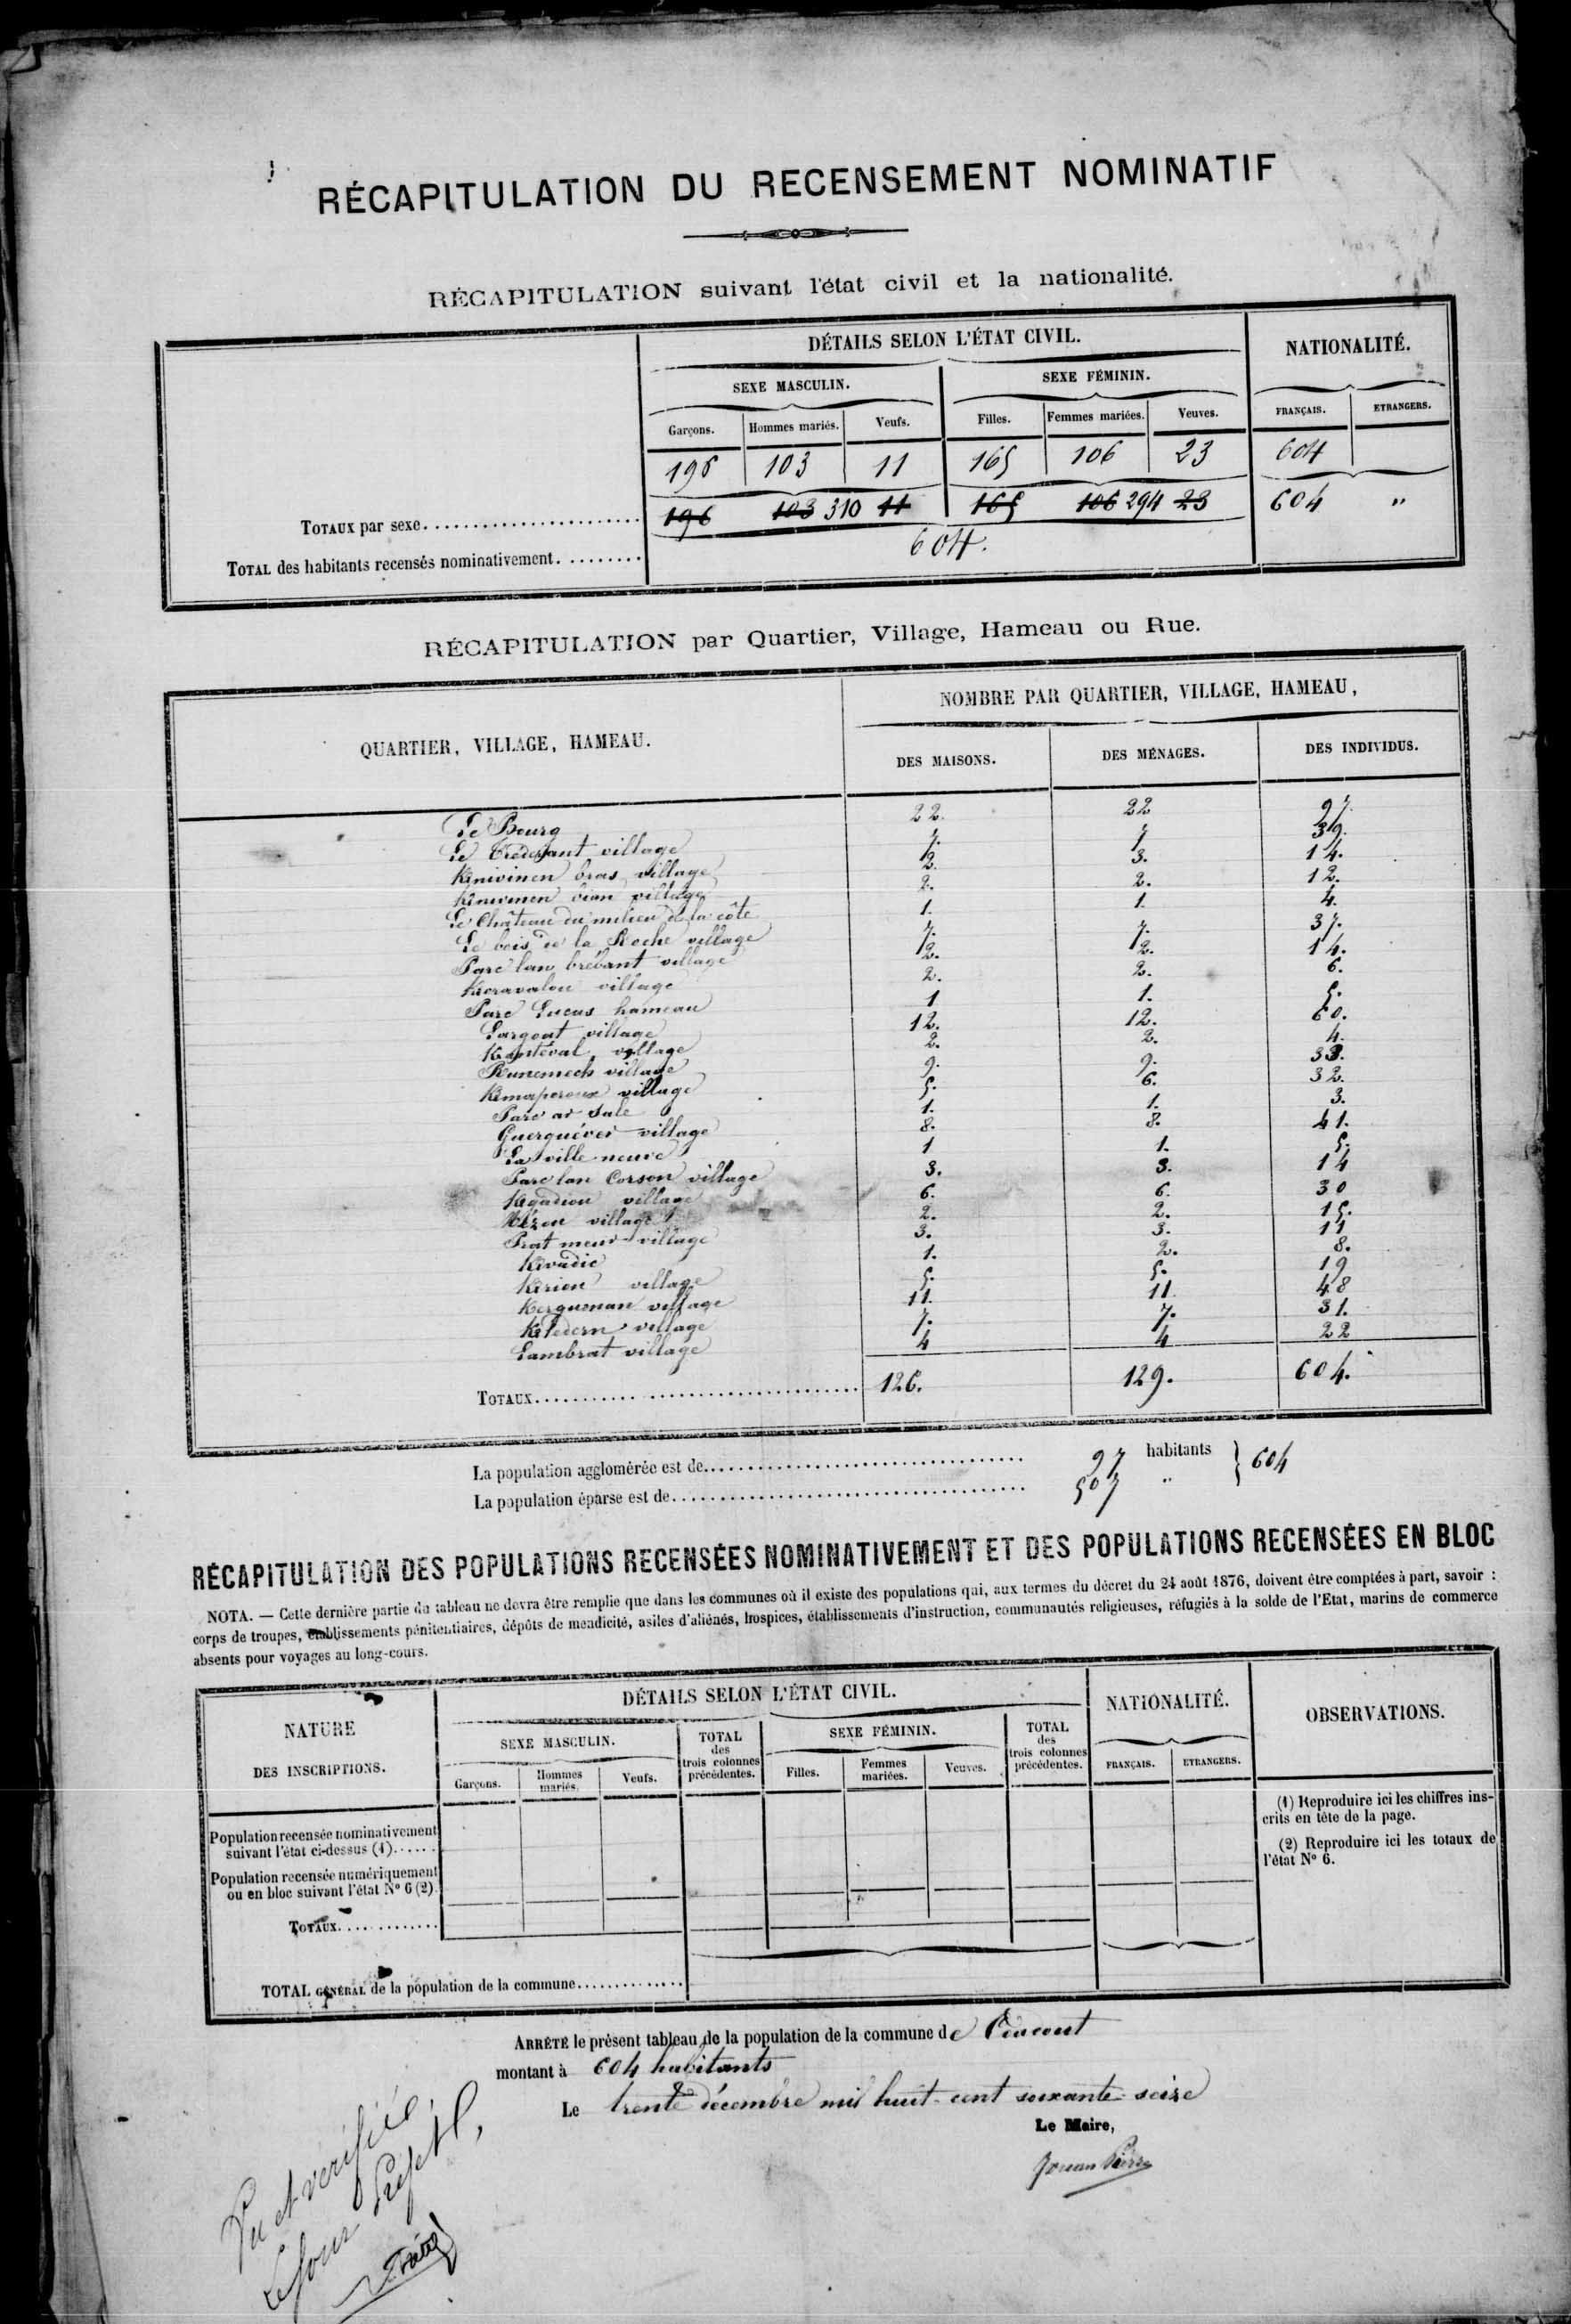 RÉCAPITULATION DU RECENSEMENT NOMINATIF
RÉCAPITULATION suivant l'état civil et la nationalité.
DÉTAILS SELON L'ÉTAT CIVIL. NATIONALITÉ.
SEXE MASCULIN. SEXE FÉMININ.
Garçons. Hommes mariés. Veufs. Filles. Femmes mariées. Veuves. FRANÇAIS. ETRANGERS.
196 103 11 165 106 23 604
TOTAUX par sexe 196 103 310 11 165 106 294 23 604 "
TOTAL des habitants recensés nominativement 604.
RÉCAPITULATION par Quartier, Village, Hameau ou Rue.
QUARTIER, VILLAGE, HAMEAU. NOMBRE PAR QUARTIER, VILLAGE, HAMEAU,
DES MAISONS. DES MÉNAGES. DES INDIVIDUS.
Le Bourg 22. 22 97.
Le village 7. 7 39.
Kinivinen bras village 2. 3. 14.
Kinivinen bian village 2. 2. 12.
Le Château du milieu de la côte 1. 1. 4.
Le bois de la Roche village 7. 7. 37.
Parc lan brébant village 2. 2. 14.
Keravalou village 2. 2. 6.
Parc Lucas hameau 1 1. 5.
Largoat village 12. 12. 60.
village 2. 2. 4.
Runemech village 9. 9. 33.
village 5. 6. 32.
Parc ar Sale 1. 1. 3.
Guerguéver village 8. 8. 41.
La ville neuve 1 1. 5.
Parc lan Corson village 3. 3. 14
Kgadiou village 6. 6. 30
village 2. 2. 15.
Prat meur village 3. 3. 11
Kivudic 1. 2. 8.
Kirien village 5. 5. 19
Kerguenan village 11. 11 48
Kledern village 7. 7. 31.
Lambrat village 4 4 22
TOTAUX 126. 129. 604.
La population agglomérée est de 97 habitants } 604
La population éparse est de 507 "
RÉCAPITULATION DES POPULATIONS RECENSÉES NOMINATIVEMENT ET DES POPULATIONS RECENSÉES EN BLOC
NOTA. — Cette dernière partie du tableau ne devra être remplie que dans les communes où il existe des populations qui, aux termes du décret du 24 août 1876, doivent être comptées à part, savoir :
corps de troupes, établissements pénitentiaires, dépôts de mendicité, asiles d'aliénés, hospices, établissements d'instruction, communautés religieuses, réfugiés à la solde de l'Etat, marins de commerce
absents pour voyages au long-cours.
NATURE DES INSCRIPTIONS. DÉTAILS SELON L'ÉTAT CIVIL. NATIONALITÉ. OBSERVATIONS.
SEXE MASCULIN. TOTAL des trois colonnes précédentes. SEXE FÉMININ. TOTAL des trois colonnes précédentes.
Garçons. Hommes mariés. Veufs. Filles. Femmes mariées. Veuves. FRANÇAIS. ETRANGERS.
Population recensée nominativement
suivant l'état ci-dessus (1)
Population recensée numériquement
ou en bloc suivant l'état N° 6 (2)
TOTAUX
TOTAL GÉNÉRAL de la population de la commune
(1) Reproduire ici les chiffres ins-
crits en tête de la page.
(2) Reproduire ici les totaux de
l'état N° 6.
ARRÊTÉ le présent tableau de la population de la commune de
montant à 604 habitants
Le trente décembre mil huit-cent soixante-seize
Le Maire,
Jouan Pierre
Vu et vérifié,
Le Sous Préfet,